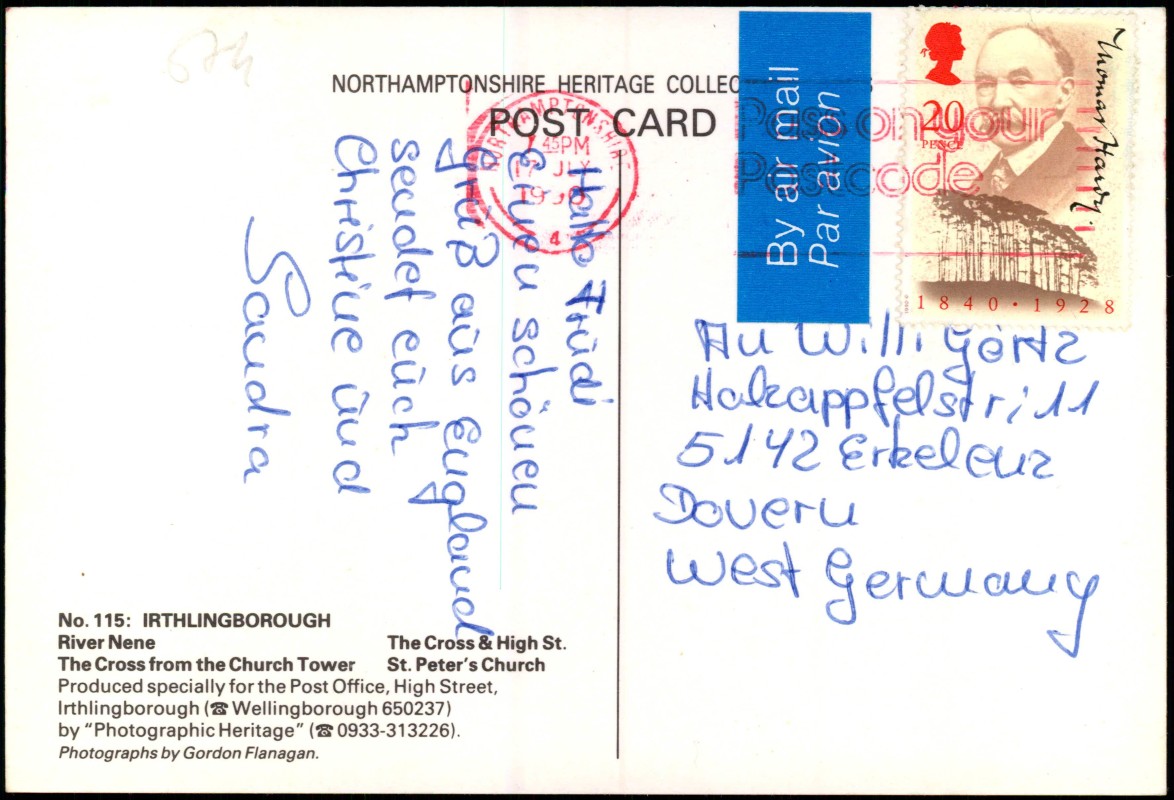 NORTHAMPTONSHIRE HERITAGE COLLEC
POST CARD
NORTHAMPTONSHIRE
45PM
17 JLY
1990
4
By air mail
Par avion
Pass on your
Postcode
20
PENCE
Thomas Hardy
1840 · 1928
Hallo Trüdi
Einen schönen
Grüß aus England
sendet euch
Christine und
Sandra
An Willi Görtz
Holzappfelstr; 11
5142 Erkelenz
Dovern
West Germany
No. 115: IRTHLINGBOROUGH
River Nene The Cross & High St.
The Cross from the Church Tower St. Peter's Church
Produced specially for the Post Office, High Street,
Irthlingborough (☎ Wellingborough 650237)
by "Photographic Heritage" (☎ 0933-313226).
Photographs by Gordon Flanagan.